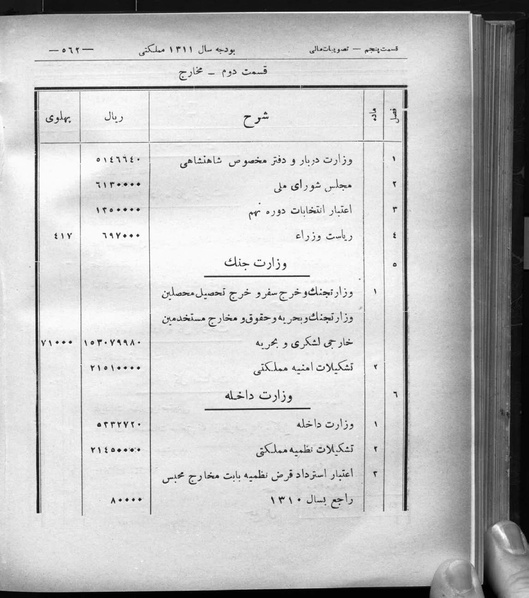 قسمت پنجم — تصویبات مالی بودجه سال ۱۳۱۱ مملکتی —۵۶۲—
قسمت دوم – مخارج
فصل ماده شرح ریال پهلوی
۱ وزارت دربار و دفتر مخصوص شاهنشاهی ۵۱۴۶۶۴۰
۲ مجلس شورای ملی ۶۱۳۰۰۰۰
۳ اعتبار انتخابات دوره نهم ۱۲۵۰۰۰۰
۴ ریاست وزراء ۶۹۷۰۰۰ ۴۱۷
۵ وزارت جنك
۱ وزارتجنك و خرج سفر و خرج تحصیل محصلین
وزارتجنك و بحریه و حقوق و مخارج مستخدمین
خارجی لشکری و بحریه ۱۵۳۰۷۹۹۸۰ ۷۱۰۰۰
۲ تشکیلات امنیه مملکتی ۲۱۵۱۰۰۰۰
۶ وزارت داخله
۱ وزارت داخله ۵۲۳۲۷۲۰
۲ تشکیلات نظمیه مملکتی ۲۱۴۵۰۰۰۰
۳ اعتبار استرداد قرض نظمیه بابت مخارج محبس
راجع بسال ۱۳۱۰ ۸۰۰۰۰